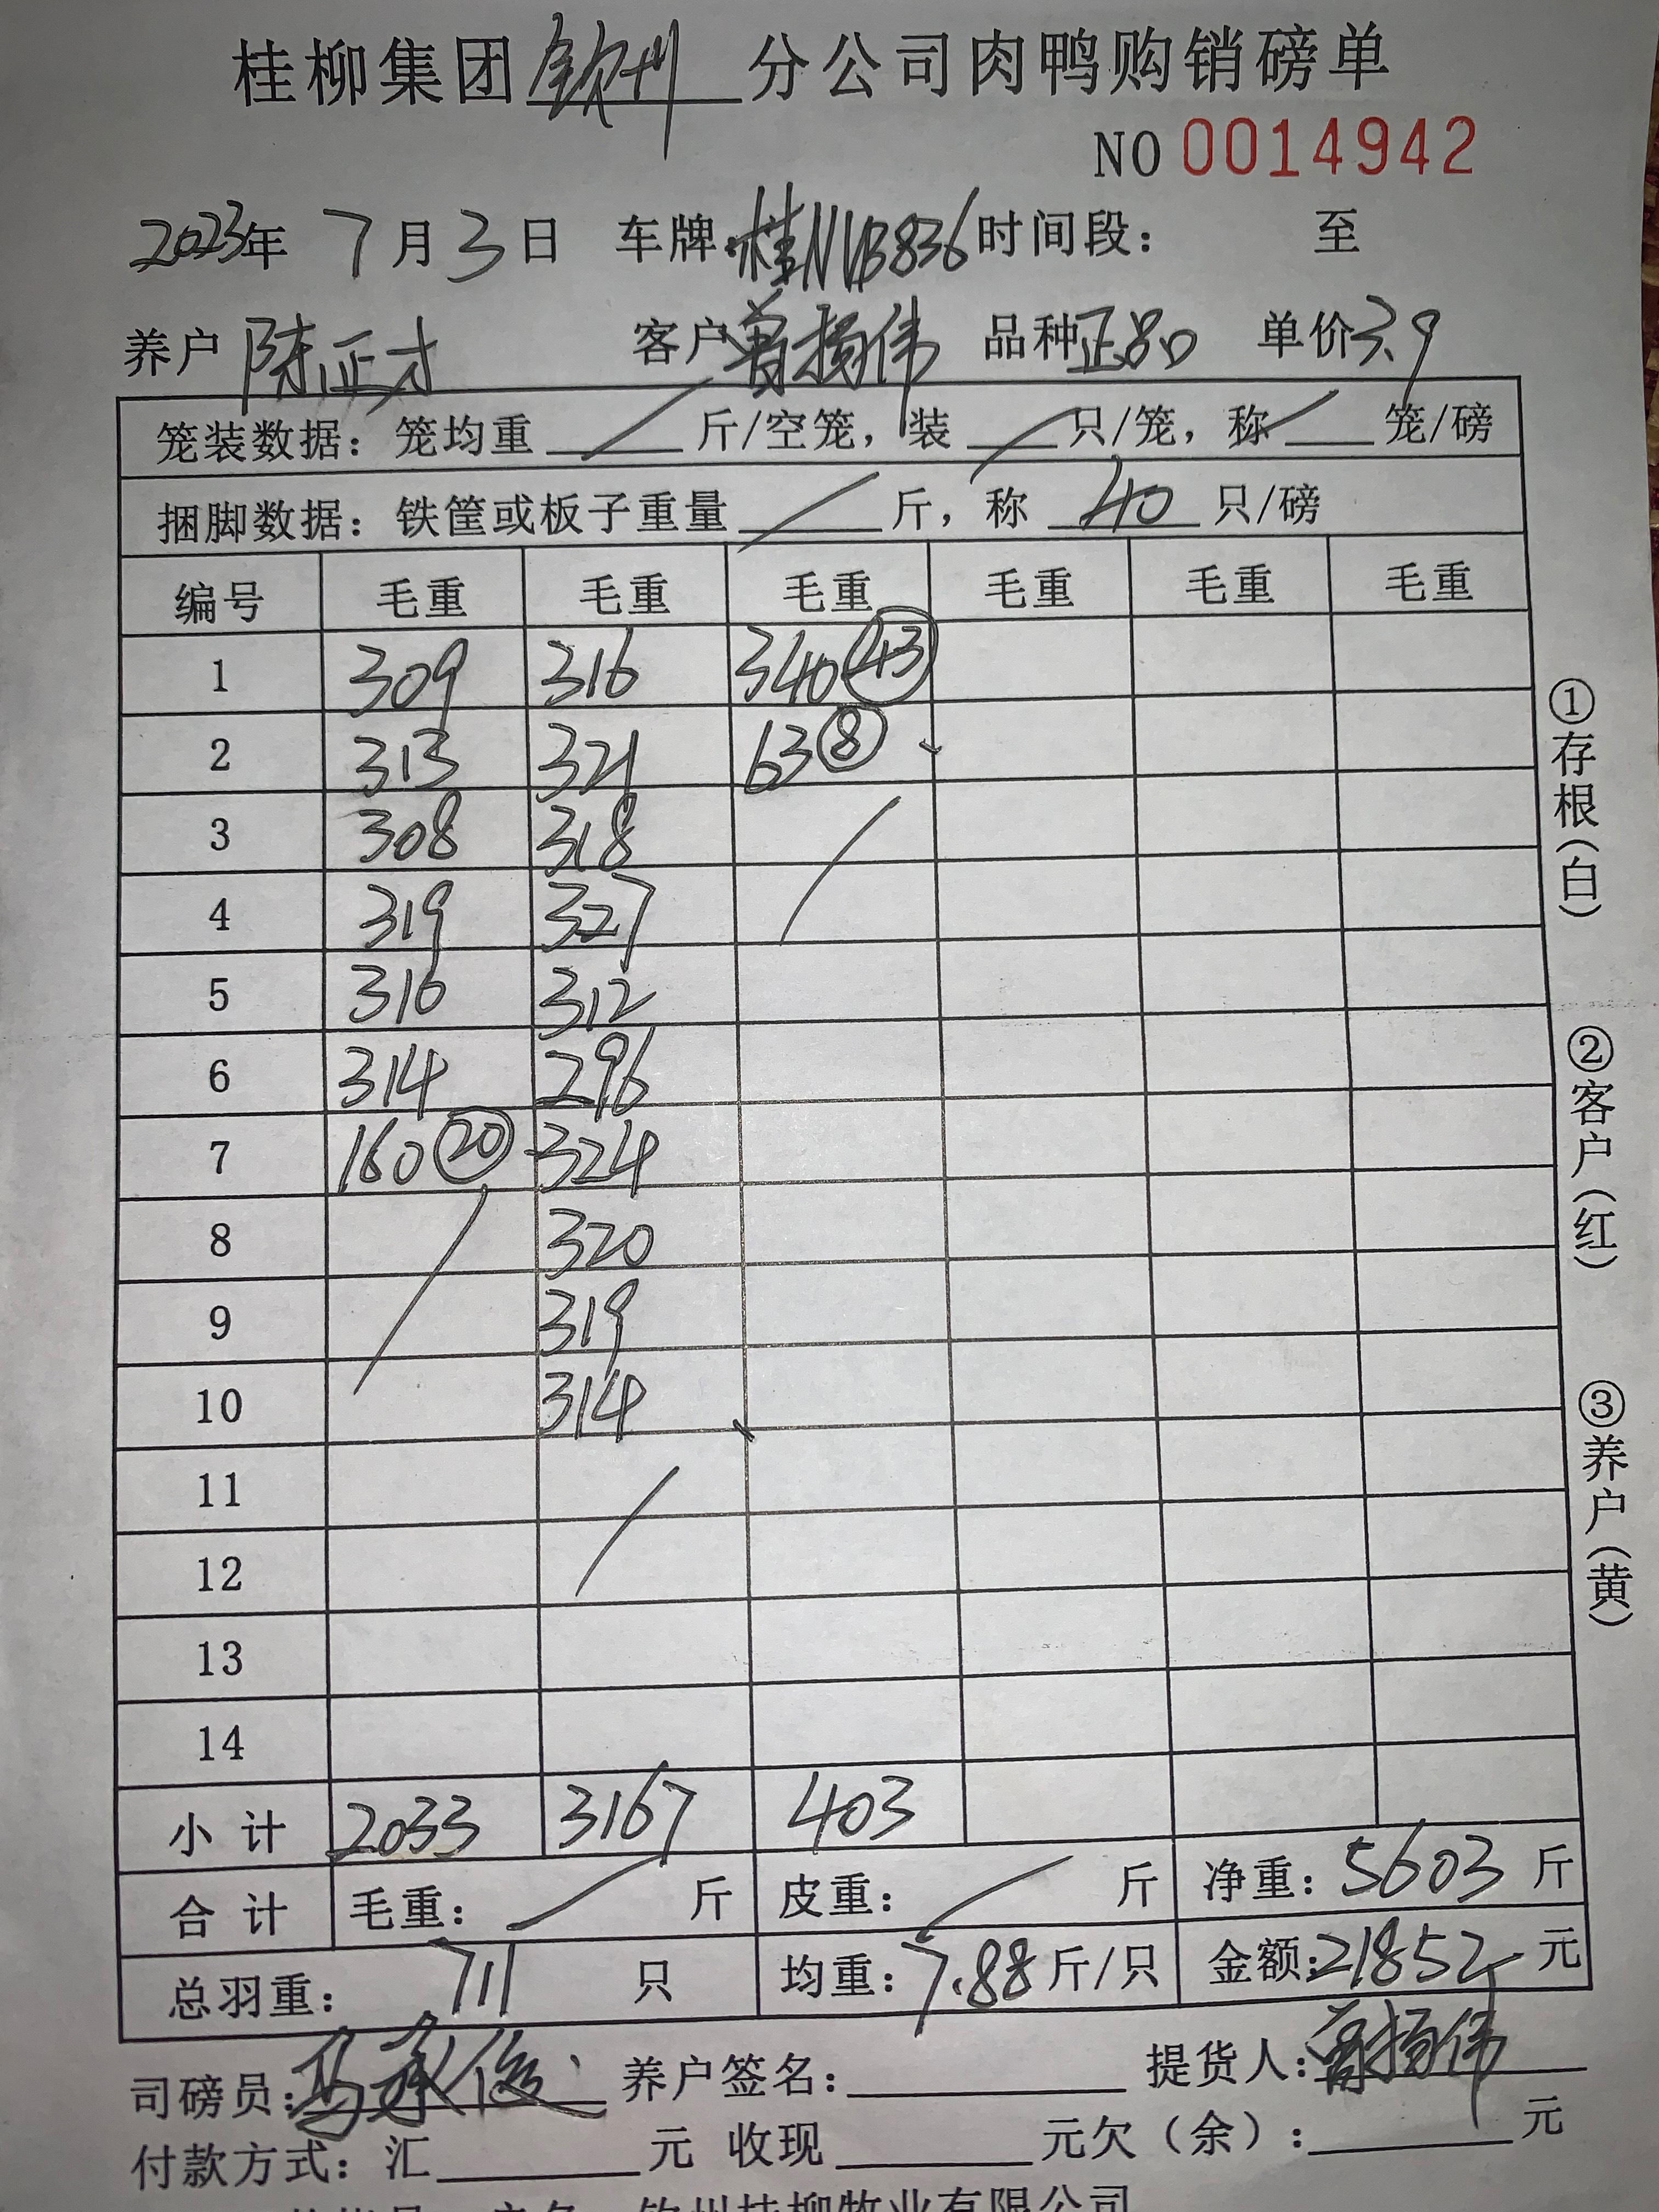 桂柳集团钦州分公司肉鸭购销磅单
NO 0014942
2023年 7月3日 车牌:桂NVB836 时间段: 至
养户 陈正才 客户 曾振伟 品种 正品 单价 3.9
笼装数据: 笼均重 / 斤/空笼, 装 / 只/笼, 称 / 笼/磅
捆脚数据: 铁筐或板子重量 / 斤, 称 40 只/磅
编号 毛重 毛重 毛重 毛重 毛重 毛重
1 309 316 340 ㊸
2 313 321 63 ⑧
3 308 318 /
4 319 327
5 310 312
6 314 296
7 160 ⑳ 324
8 / 320
9 319
10 314
11 /
12
13
14
小计 2033 3167 403
合计 毛重: / 斤 皮重: / 斤 净重: 5603 斤
总羽重: 711 只 均重: 7.88 斤/只 金额: 21852 元
司磅员: 马承俊 养户签名: 提货人: 曾振伟
付款方式: 汇 元 收现 元欠(余): 元
钦州桂柳牧业有限公司
①存根(白)
②客户(红)
③养户(黄)